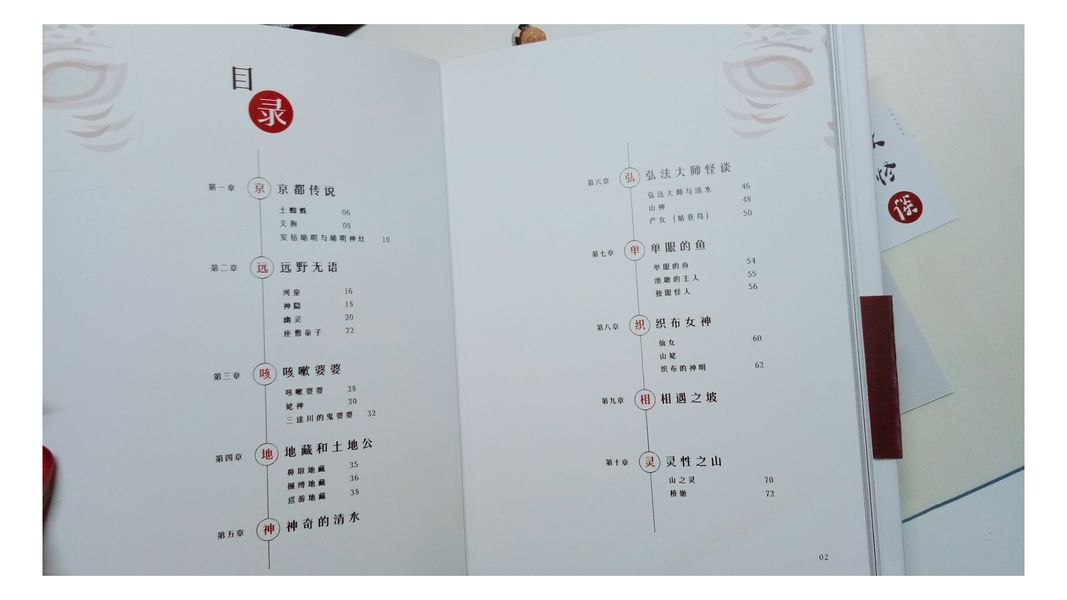 目
录
第一章 京 京都传说
土蜘蛛 06
天狗 08
安倍晴明与晴明神社 10
第二章 远 远野无语
河童 16
神隐 18
幽灵 20
座敷童子 22
第三章 咳 咳嗽婆婆
咳嗽婆婆 28
姥神 30
三途川的鬼婆婆 32
第四章 地 地藏和土地公
鼻取地藏 35
捆缚地藏 36
巡游地藏 38
第五章 神 神奇的清水
第六章 弘 弘法大师怪谈
弘法大师与清水 46
山神 48
产女（姑获鸟） 50
第七章 单 单眼的鱼
单眼的鱼 54
池塘的主人 55
独眼怪人 56
第八章 织 织布女神
仙女 60
山姥
织布的神明 62
第九章 相 相遇之坡
第十章 灵 灵性之山
山之灵 70
桥姬 72
02
怪
谈